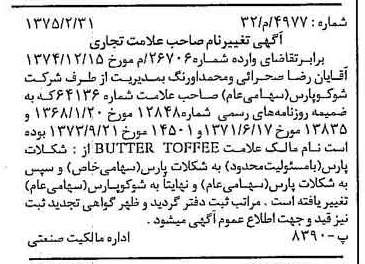 شماره : ۴۹۷۷/م/۳۲ ۱۳۷۵/۲/۳۱
آگهی تغییرنام صاحب علامت تجاری
برابرتقاضای وارده شماره۲۶۷۰۶/م مورخ ۱۳۷۴/۱۲/۱۵
آقایان رضا صحرائی ومحمداورنگ بمدیریت از طرف شرکت
شوکوپارس(سهامی‌عام) صاحب علامت شماره ۶۴۱۳۶که به
ضمیمه روزنامه‌های رسمی شماره۱۲۸۴۸ مورخ ۱۳۶۸/۱/۲۰ و
۱۳۸۳۵ مورخ ۱۳۷۱/۶/۱۷و ۱۴۵۰۱ مورخ ۱۳۷۳/۹/۲۱ بوده
است نام مالک علامت BUTTER TOFFEE از : شکلات
پارس(بامسئولیت‌محدود) به شکلات پارس(سهامی‌خاص) و سپس
به شکلات پارس(سهامی‌عام) و نهایتاً به شوکوپارس(سهامی‌عام)
تغییر یافته است . مراتب ثبت دفتر گردید و ظهر گواهی تجدید ثبت
نیز قید و جهت اطلاع عموم آگهی میشود .
پ -۸۳۹۰ اداره مالکیت صنعتی